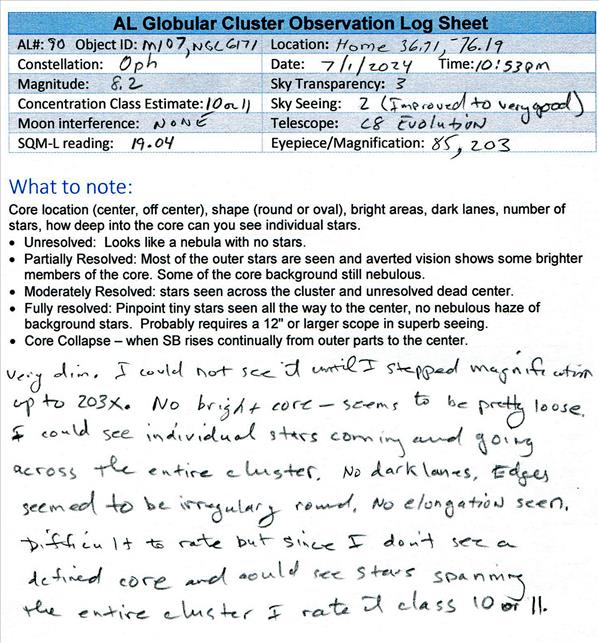 AL Globular Cluster Observation Log Sheet
AL#: 90 Object ID: M107, NGC6171 Location: Home 36.71, -76.19
Constellation: Oph Date: 7/1/2024 Time: 10:53pm
Magnitude: 8.2 Sky Transparency: 3
Concentration Class Estimate: 10 or 11 Sky Seeing: 2 (Improved to very good)
Moon interference: NONE Telescope: C8 Evolution
SQM-L reading: 19.04 Eyepiece/Magnification: 85, 203
What to note:
Core location (center, off center), shape (round or oval), bright areas, dark lanes, number of
stars, how deep into the core can you see individual stars.
• Unresolved: Looks like a nebula with no stars.
• Partially Resolved: Most of the outer stars are seen and averted vision shows some brighter
members of the core. Some of the core background still nebulous.
• Moderately Resolved: stars seen across the cluster and unresolved dead center.
• Fully resolved: Pinpoint tiny stars seen all the way to the center, no nebulous haze of
background stars. Probably requires a 12" or larger scope in superb seeing.
• Core Collapse – when SB rises continually from outer parts to the center.
Very dim. I could not see it until I stepped magnification
up to 203x. No bright core - seems to be pretty loose.
I could see individual stars coming and going
across the entire cluster. No dark lanes, Edges
seemed to be irregulary round. No elongation seen.
Difficult to rate but since I don't see a
defined core and could see stars spanning
the entire cluster I rate it class 10 or 11.